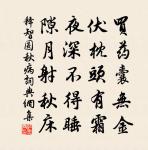 買药囊無金
伏枕頭有霜
夜深不得睡
隙月射秋床
釋智圓秋病詞典網集